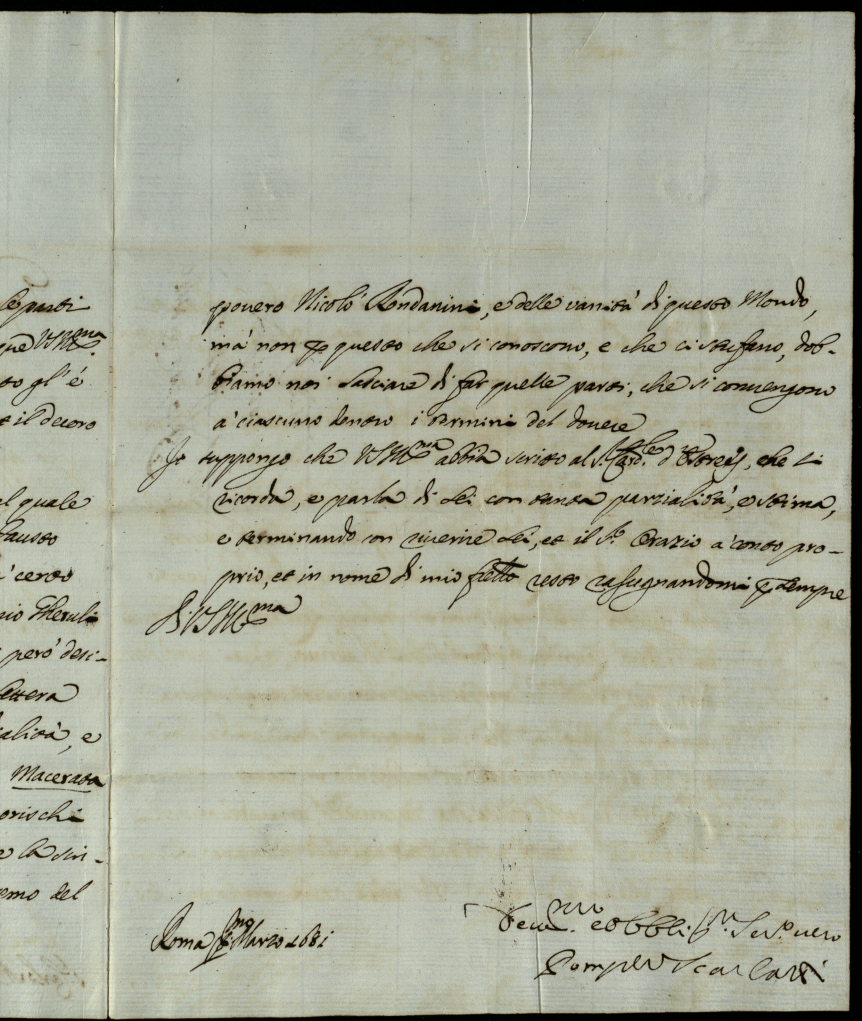 le parti
que VSIll.ma
to gl'è
e il decoro
al quale
fausto
à certo
nio
però desi-
lettera
alità, e
Macerata
orischi
e la scri-
emo del
povero Nicolò Rondanini, e delle vanità di questo Mondo,
mà non p questo che si conoscono, e che ci stufano, dob-
biamo noi lasciare di far quelle parti, che si convengono
à ciascuno dentro i termini del dovere
Io suppongo che VSIll.ma abbia scritto al S.r Card.le d'Etrees, che Li
ricorda, e parla di Lei con tanta parzialità, e stima,
e terminando con riverire Lei, et il S.r Orazio à conto pro-
prio, et in nome di mio frello resto rassegnandomi p sempre
Di VSIll.ma
Roma p.mo Marzo 1681
Dev.mo et Obbli.mo Ser.re vero
Pompeo Scarlatti